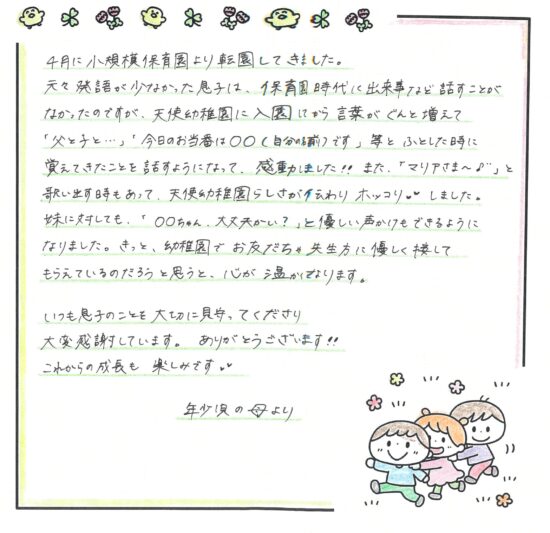 4月に小規模保育園より転園してきました。
元々発語が少なかった息子は、保育園時代に出来事など話すことが
なかったのですが、天使幼稚園に入園してから言葉がぐんと増えて
「父と子と…」「今日のお当番は〇〇(自分の名前)です」等とふとした時に
覚えてきたことを話すようになって、感動しました!! また、「マリアさま〜♪」と
歌い出す時もあって、天使幼稚園らしさが伝わりホッコリ♥♥しました。
妹に対しても、「〇〇ちゃん、大丈夫かい?」と優しい声かけもできるように
なりました。きっと、幼稚園でお友だちや先生方に優しく接して
もらえているのだろうと思うと、心が温かくなります。
いつも息子のことを大切に見守ってくださり
大変感謝しています。ありがとうございます!!
これからの成長も楽しみです♥♥
年少児の母より